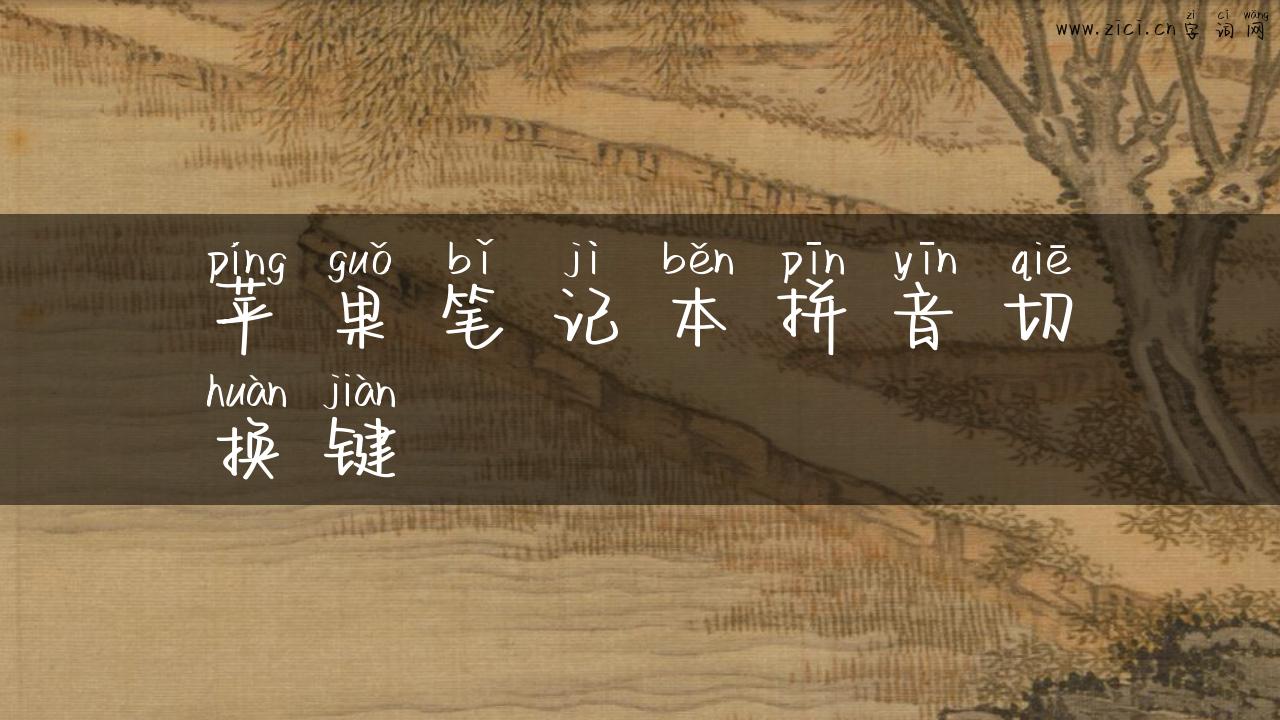 zì cí wǎng
www.zici.cn字词网
píng guǒ bǐ jì běn pīn yīn qiē
苹果笔记本拼音切
huàn jiàn
换键